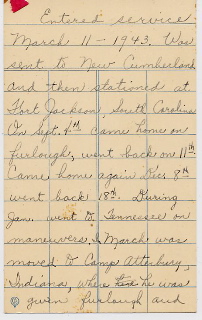 Entered service
March 11 - 1943. Was
sent to New Cumberland
and then stationed at
Fort Jackson, South Carolina
On Sept. 4th came home on
furlough, went back on 11th.
Came home again Dec. 8th
went back 18th. During
Jan. went to Tennessee on
maneuvers & March was
moved to Camp Atterbury,
Indiana, where he was
given furlough and